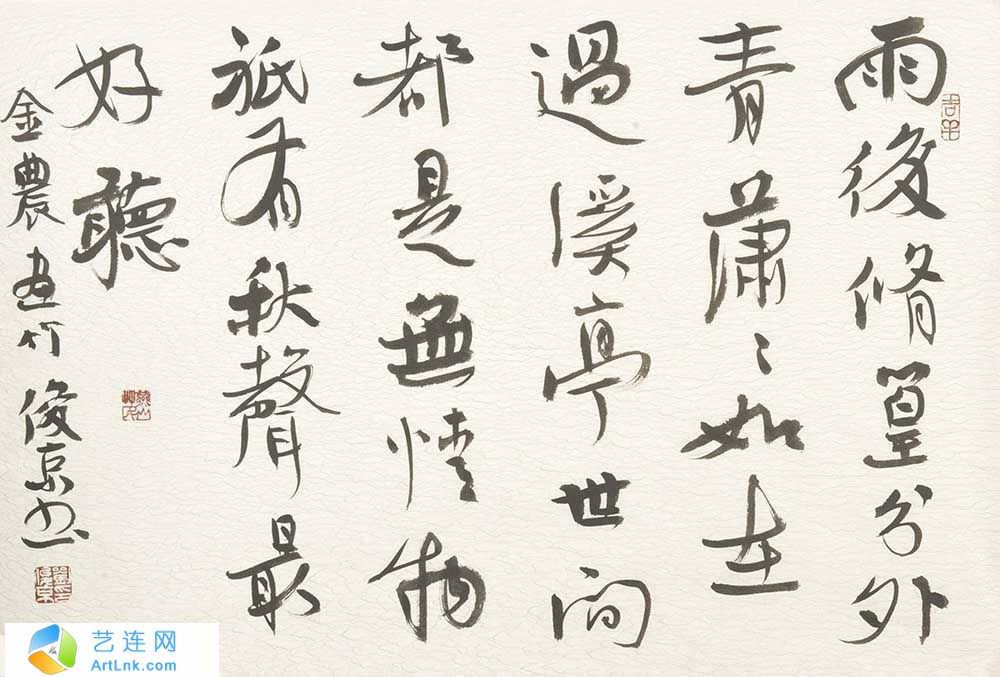 雨後脩篁分外
青蕭〻如在
過溪亭世间
都是無情物
祇有秋聲最
好聽
金農画竹 俊京书
艺连网
ArtLnk.com